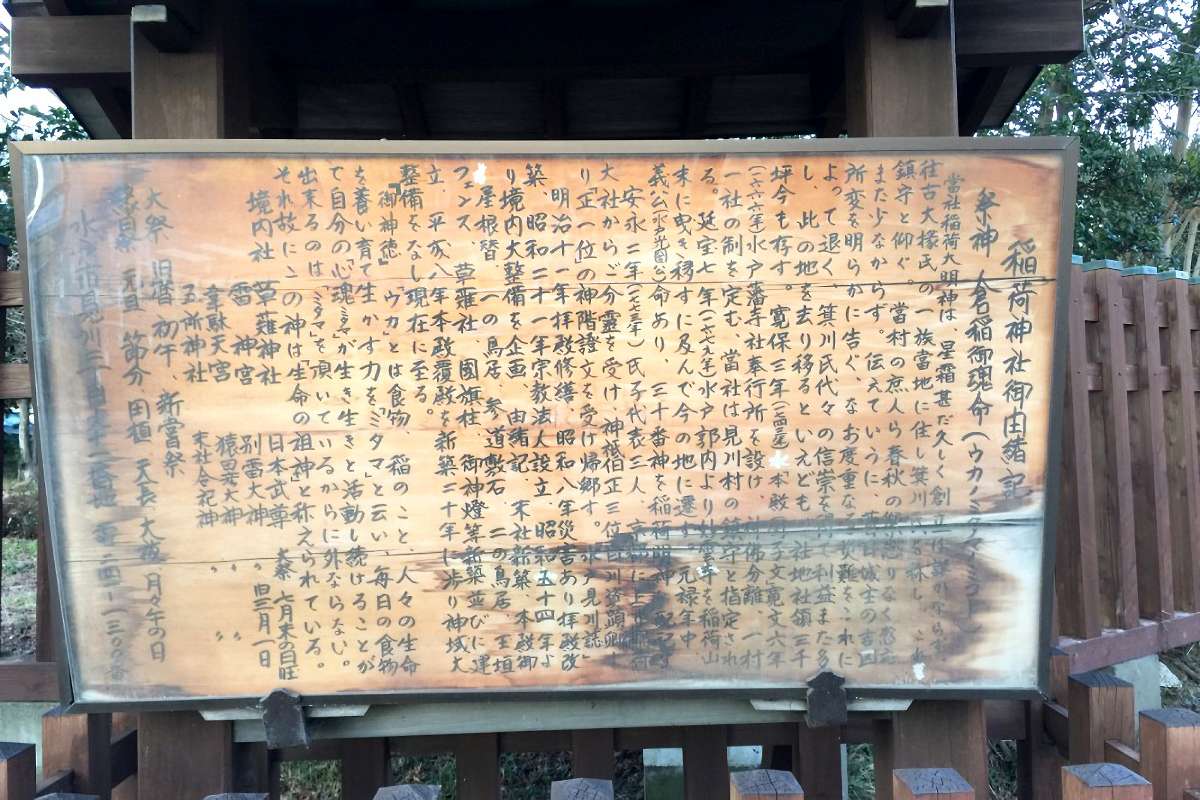 稲荷神社御由緒記
祭神 倉稲御魂命(ウカノミタマノミコト)
当社稲荷大明神は、星霜甚だ久しく創立
往古大掾氏の一族當地に住し箕川氏を称し、これ
鎮守と仰ぐ。當村の庶人ら春秋の
また少なからず。伝えていうに、春日城主の吉凶
所変を明らかに告ぐ、なお度重なる災難をこれに
よって退く、箕川氏代々の信崇を得て利益また多
し、此の地を去り移るといえども、社地社領三千
坪今も存す。寛保三年
(一六六六年)水戸藩寺社奉行所を設け、神佛分離、一村
一社の制を定む、當社は見川村の鎮守と指定され
る。延宝七年(一六七九年)水戸郭内より
末に曳き移すに及んで今の地に遷す、元禄年中、
義公(水戸光圀公)命あり、三十番神を稲荷明神
安永二年(一七七三年)氏子代表三人、京都
大社からご分霊を受け神祇伯正三位白川資顕卿よ
り「正一位」の神階證文を受け帰郷す。(水戸見川誌)
明治十一年拝殿修繕、昭和八年災害あり拝殿改
築、昭和二十一年宗教法人設立、昭和五十四年よ
り境内大整備を企画、由緒記、末社新築、本殿御
屋根替、一の鳥居、参道敷石、二の鳥居、玉垣
フェンス、草薙社、國旗柱、御神燈等新築並びに運
立、平成八年本殿覆殿を新築二十年に渉り神域大
整備をなし現在に至る。
「御神徳」「ウカ」とは食物、稲のこと、人々の生命
を養い育て生かす力を「ミタマ」と云い、毎日の食物
で自分の「心魂(ミタマ)」が生き生きと活動し続けることが
出来るのは「ミタマ」を頂いているからに外ならない。
それ故にこの神は生命の祖神と称えられている。
境内社 草薙神社 日本武尊 大祭 七月末の日旺
雷神宮 別雷大神 〃 旧三月一日
幸駄天宮 猿田大神 〃 〃
五所神社 末社合祀神 〃 〃
大祭 旧暦 初午、新嘗祭
祭 元旦 節分 田植 天長 大祓 月々午の日
水戸市見川二丁目